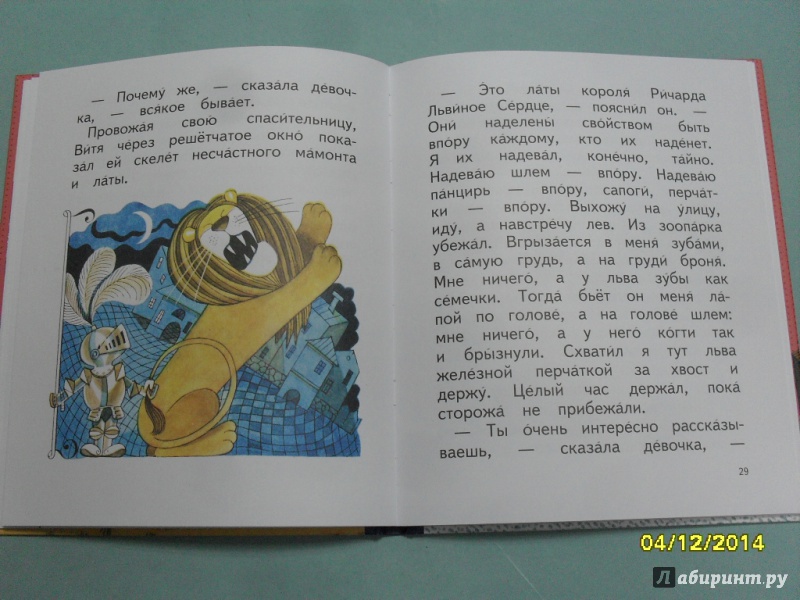 — Почему́ же, — сказа́ла де́воч-
ка, — вся́кое быва́ет.
Провожа́я свою́ спаси́тельницу,
Ви́тя че́рез решётчатое окно́ пока-
за́л ей скеле́т несча́стного ма́монта
и ла́ты.
— Э́то ла́ты короля́ Ри́чарда
Льви́ное Се́рдце, — поясни́л он. —
Они́ наделены́ сво́йством быть
впо́ру ка́ждому, кто их наде́нет.
Я их надева́л, коне́чно, та́йно.
Надева́ю шлем — впо́ру. Надева́ю
па́нцирь — впо́ру, сапоги́, перча́т-
ки — впо́ру. Выхожу́ на у́лицу,
иду́, а навстре́чу лев. Из зоопа́рка
убежа́л. Вгрыза́ется в меня́ зуба́ми,
в са́мую грудь, а на груди́ броня́.
Мне ничего́, а у льва зу́бы как
се́мечки. Тогда́ бьёт он меня́ ла́-
пой по голове́, а на голове́ шлем:
мне ничего́, а у него́ ко́гти так
и бры́знули. Схвати́л я тут льва
желе́зной перча́ткой за хвост и
держу́. Це́лый час держа́л, пока́
сторожа́ не прибежа́ли.
— Ты о́чень интере́сно расска́зы-
ваешь, — сказа́ла де́вочка, —
29
04/12/2014
Лабиринт.ру